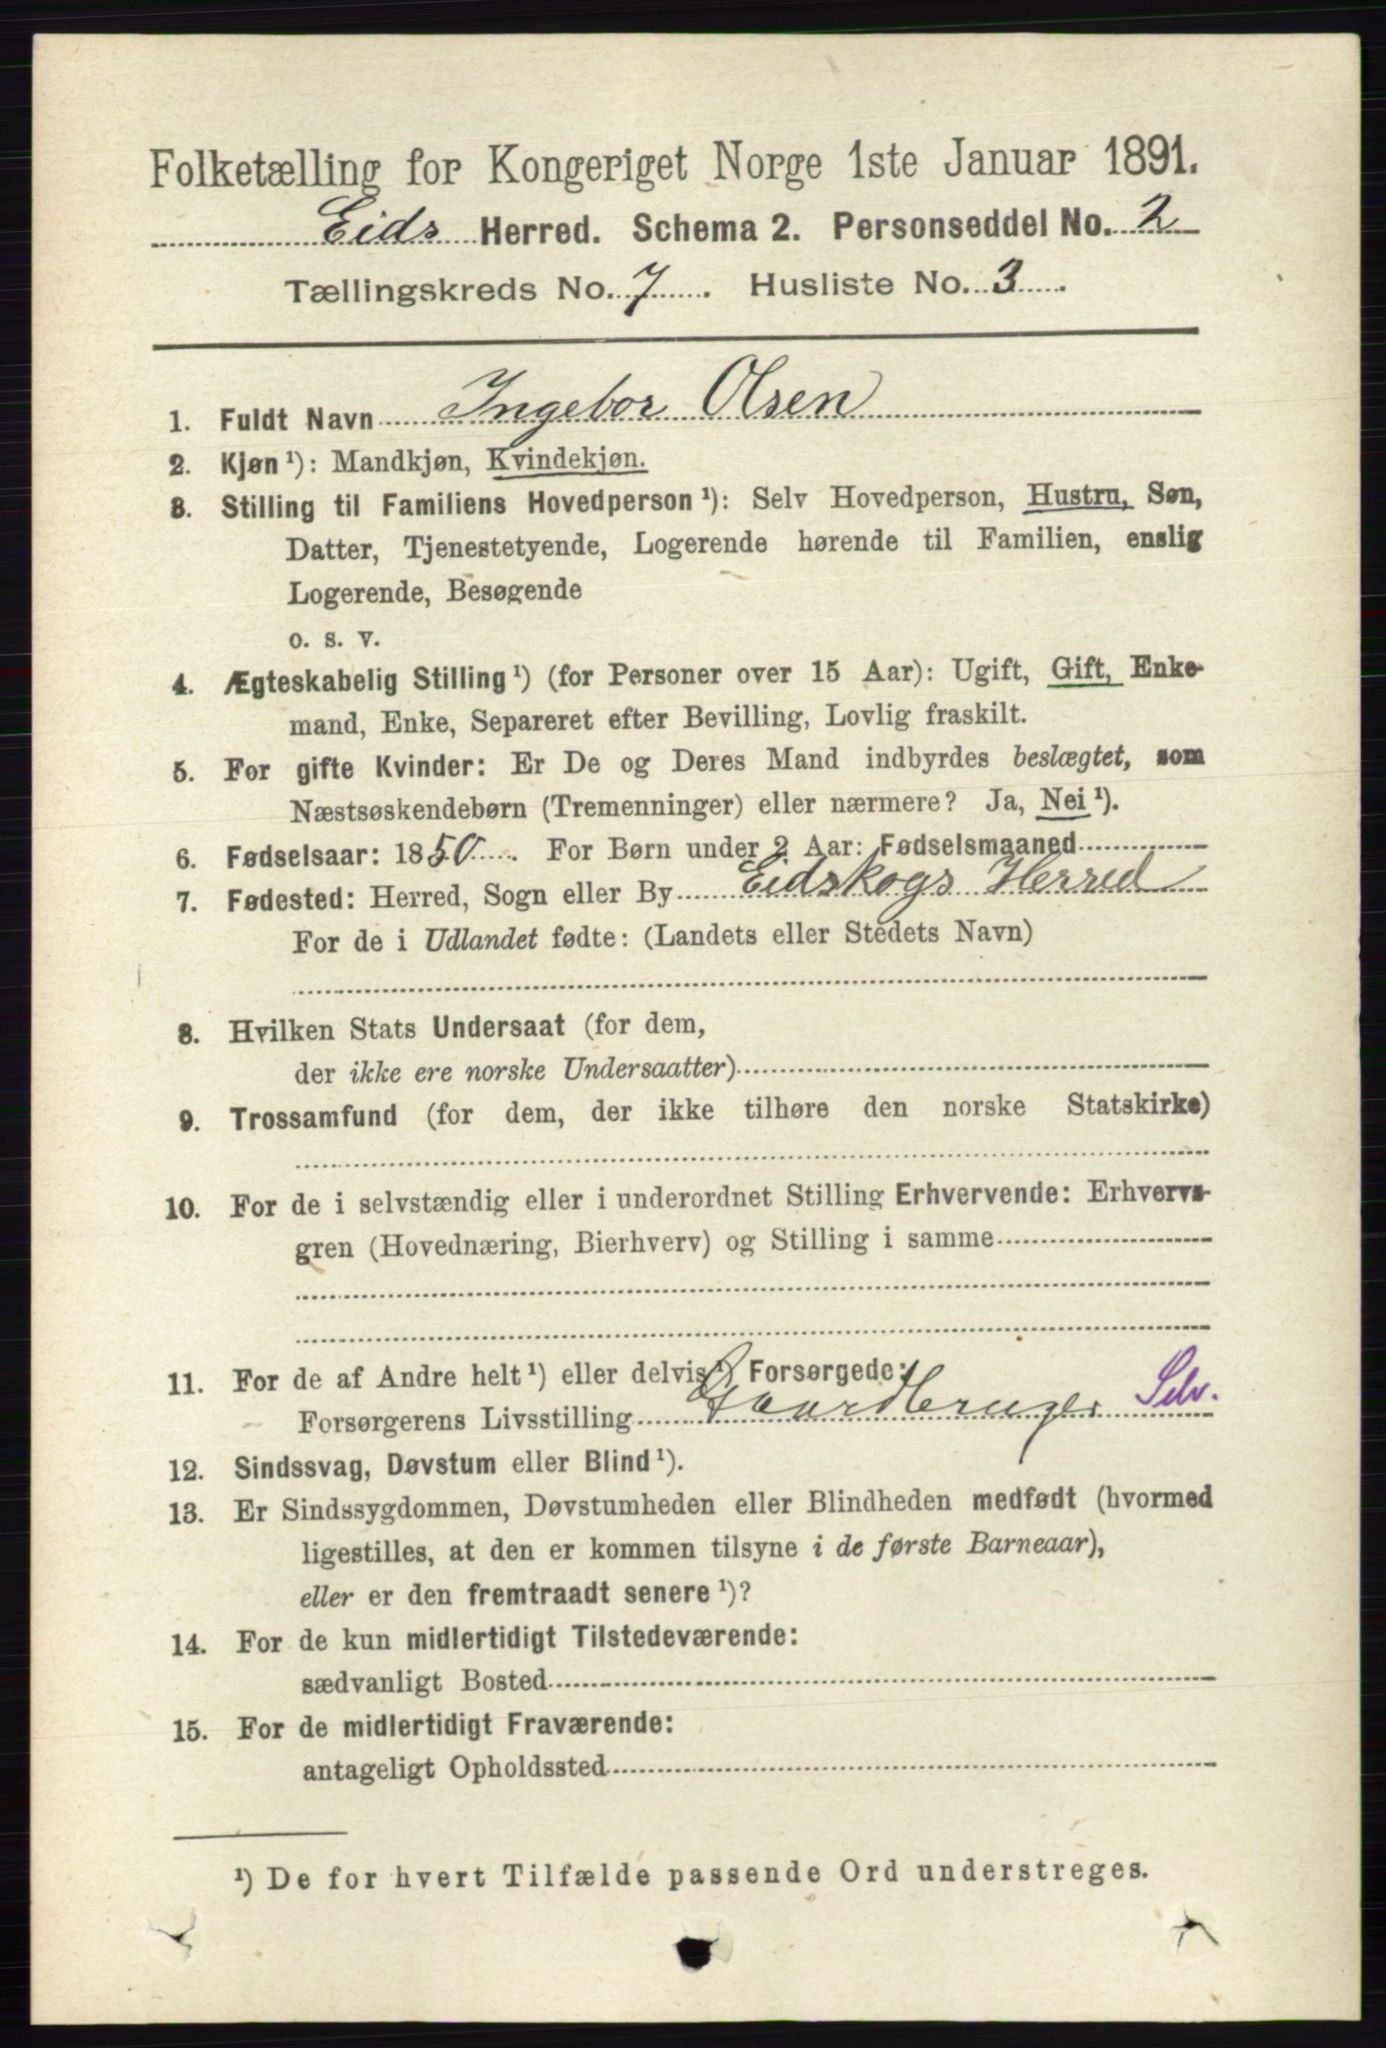 Folketælling for Kongeriget Norge 1ste Januar 1891.
Eids Herred. Schema 2. Personseddel No. 2
Tællingskreds No. 7. Husliste No. 3.
1. Fuldt Navn Ingebor Olsen
2. Kjøn ¹): Mandkjøn, Kvindekjøn.
3. Stilling til Familiens Hovedperson ¹): Selv Hovedperson, Hustru, Søn,
Datter, Tjenestetyende, Logerende hørende til Familien, enslig
Logerende, Besøgende
o. s. v.
4. Ægteskabelig Stilling ¹) (for Personer over 15 Aar): Ugift, Gift, Enke-
mand, Enke, Separeret efter Bevilling, Lovlig fraskilt.
5. For gifte Kvinder: Er De og Deres Mand indbyrdes beslægtet, som
Næstsøskendebørn (Tremenninger) eller nærmere? Ja, Nei ¹).
6. Fødselsaar: 1850. For Børn under 2 Aar: Fødselsmaaned
7. Fødested: Herred, Sogn eller By Eidskogs Herred
For de i Udlandet fødte: (Landets eller Stedets Navn)
8. Hvilken Stats Undersaat (for dem,
der ikke ere norske Undersaatter)
9. Trossamfund (for dem, der ikke tilhøre den norske Statskirke)
10. For de i selvstændig eller i underordnet Stilling Erhvervende: Erhvervs-
gren (Hovednæring, Bierhverv) og Stilling i samme
11. For de af Andre helt ¹) eller delvis ¹) Forsørgede:
Forsørgerens Livsstilling Gaardbruger Selv.
12. Sindssvag, Døvstum eller Blind ¹).
13. Er Sindssygdommen, Døvstumheden eller Blindheden medfødt (hvormed
ligestilles, at den er kommen tilsyne i de første Barneaar),
eller er den fremtraadt senere ¹)?
14. For de kun midlertidigt Tilstedeværende:
sædvanligt Bosted
15. For de midlertidigt Fraværende:
antageligt Opholdssted
¹) De for hvert Tilfælde passende Ord understreges.